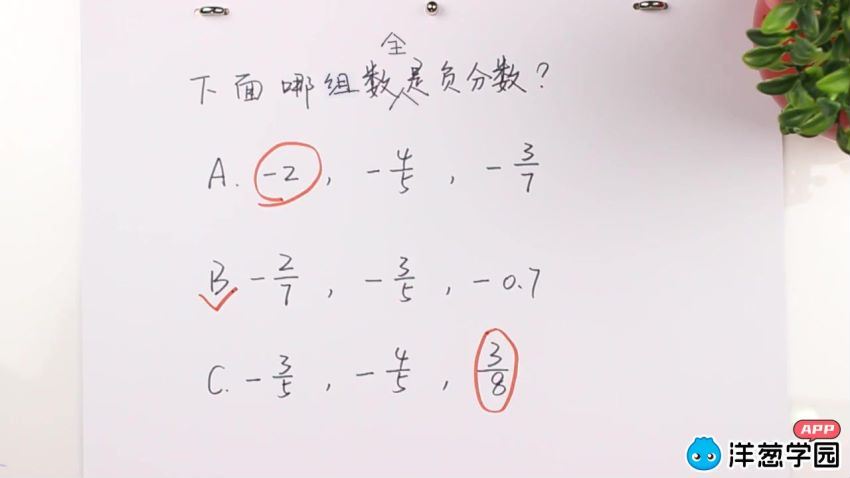 下面哪组数全是负分数?
A. -2, -4/5, -3/7
B -2/7, -3/5, -0.7
C. -3/5, -4/5, 3/8
APP
洋葱学园